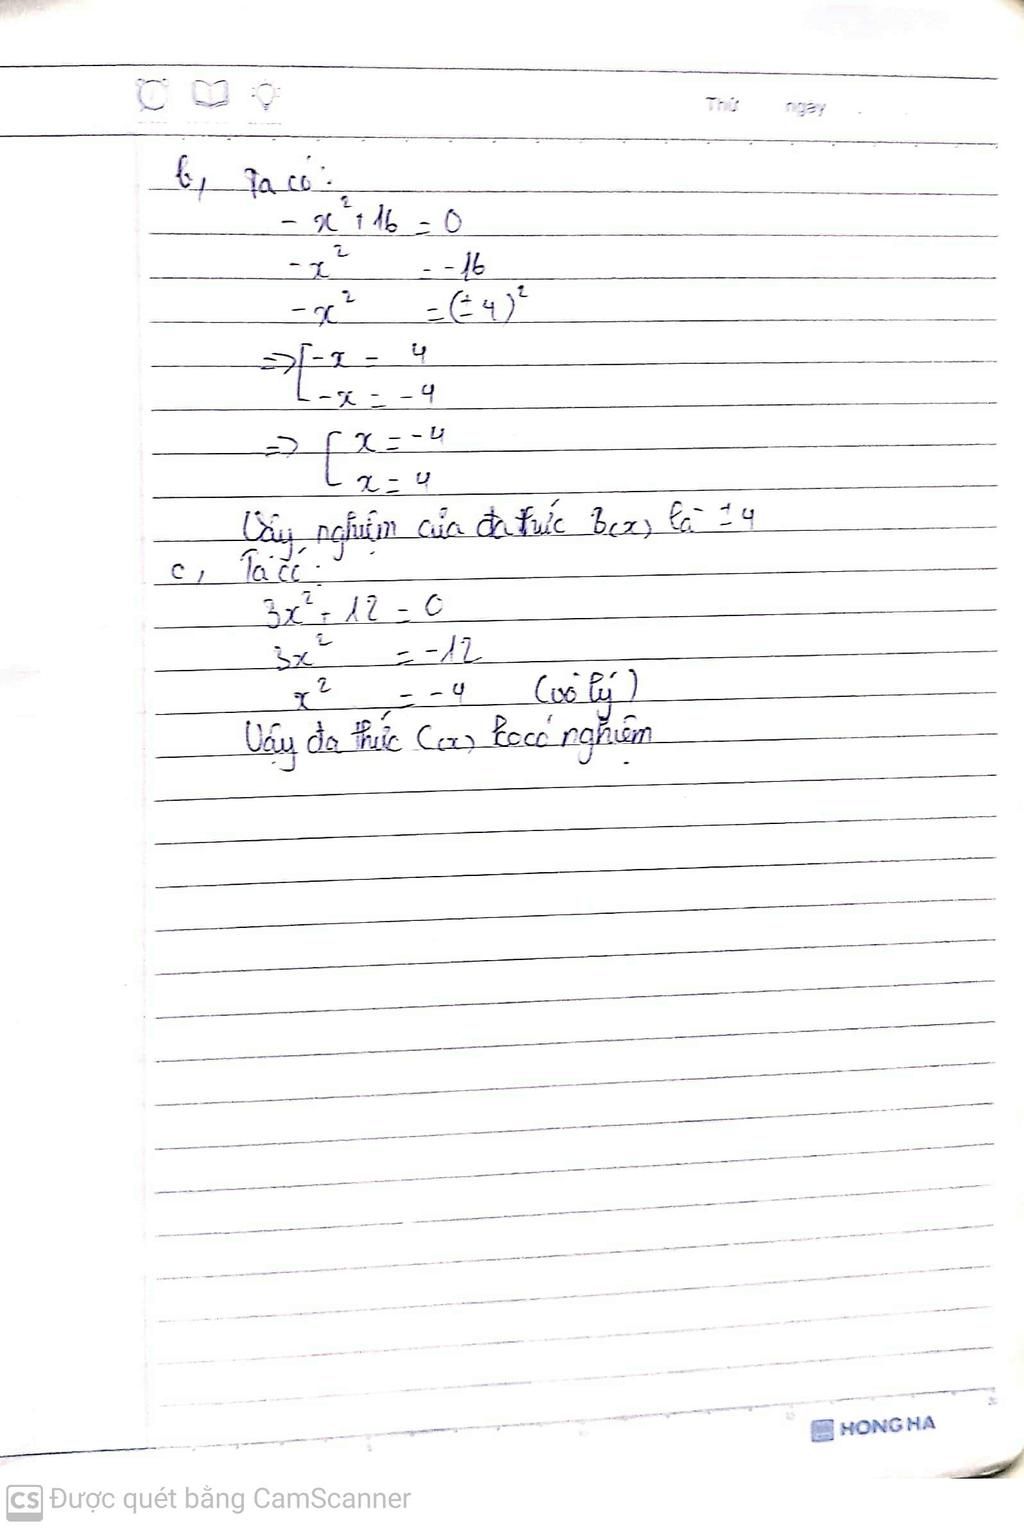 Thứ ngày
b, Ta có:
- x² + 16 = 0
- x² = -16
- x² = (± 4)²
=> [ -x = 4
-x = -4
=> [ x = -4
x = 4
Vậy nghiệm của đa thức B(x) là ± 4
c, Ta có:
3x² + 12 = 0
3x² = -12
x² = -4 (vô lý)
Vậy đa thức C(x) ko có nghiệm
HONG HA
CS Được quét bằng CamScanner